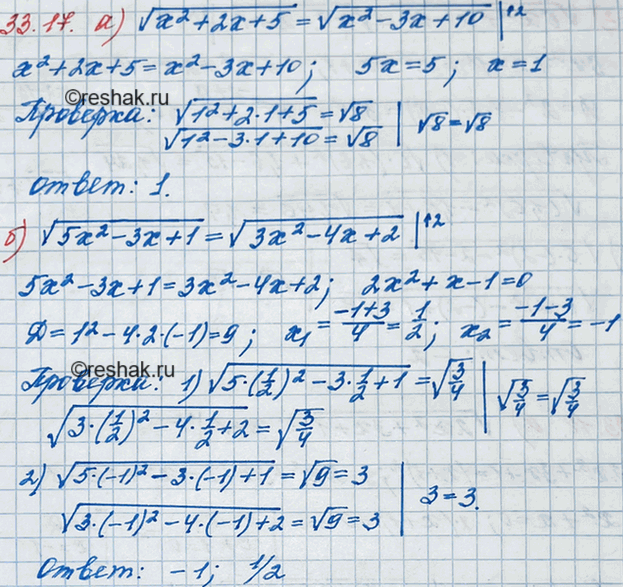 33.17. а) √(x²+2x+5) = √(x²-3x+10) |↑2
x²+2x+5=x²-3x+10; 5x=5; x=1
©reshak.ru
Проверка: √(1²+2·1+5)=√8
√(1²-3·1+10)=√8 | √8=√8
ответ: 1.
б) √(5x²-3x+1)=√(3x²-4x+2) |↑2
5x²-3x+1=3x²-4x+2; 2x²+x-1=0
Д=1²-4·2·(-1)=9; x₁=(-1+3)/4=1/2; x₂=(-1-3)/4=-1
©reshak.ru
Проверка: 1) √(5·(1/2)²-3·1/2+1)=√(3/4)
√(3·(1/2)²-4·1/2+2)=√(3/4) | √(3/4)=√(3/4)
2) √(5·(-1)²-3·(-1)+1)=√9=3
√(3·(-1)²-4·(-1)+2)=√9=3 | 3=3.
Ответ: -1; 1/2